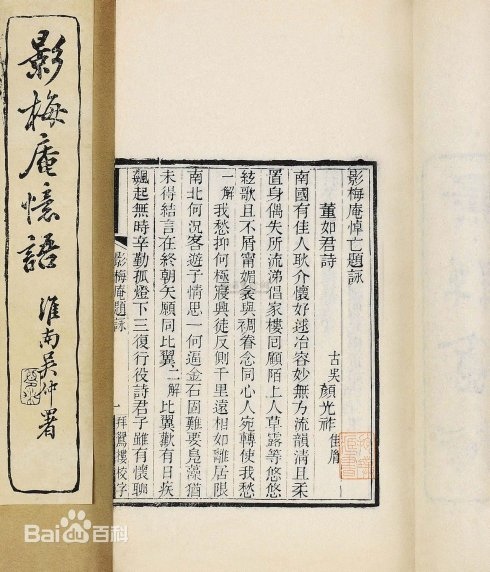 影梅庵憶語
淮南吳仲署
影梅庵悼亡題詠
董如君詩
古吳 顏光祚
南國有佳人耿介懷好逑冶容妙無為流韻淸且柔
置身偶失所流涕倡家樓囘顧陌上人草露等悠悠
絃歌且不屑甯媚衾與裯眷念同心人宛轉使我愁
一解 我愁抑何極寢興徒反側千里遠相如離居限
南北何況客遊子情思一何逼金石固難要鳧藻猶
未得結言在終朝矢願同比翼二解 比翼歡有日疾
飆起無時辛勤孤燈下三復行役詩君子雖有懷聊
影梅庵題詠 一 拜鴛樓校字
Bai百科